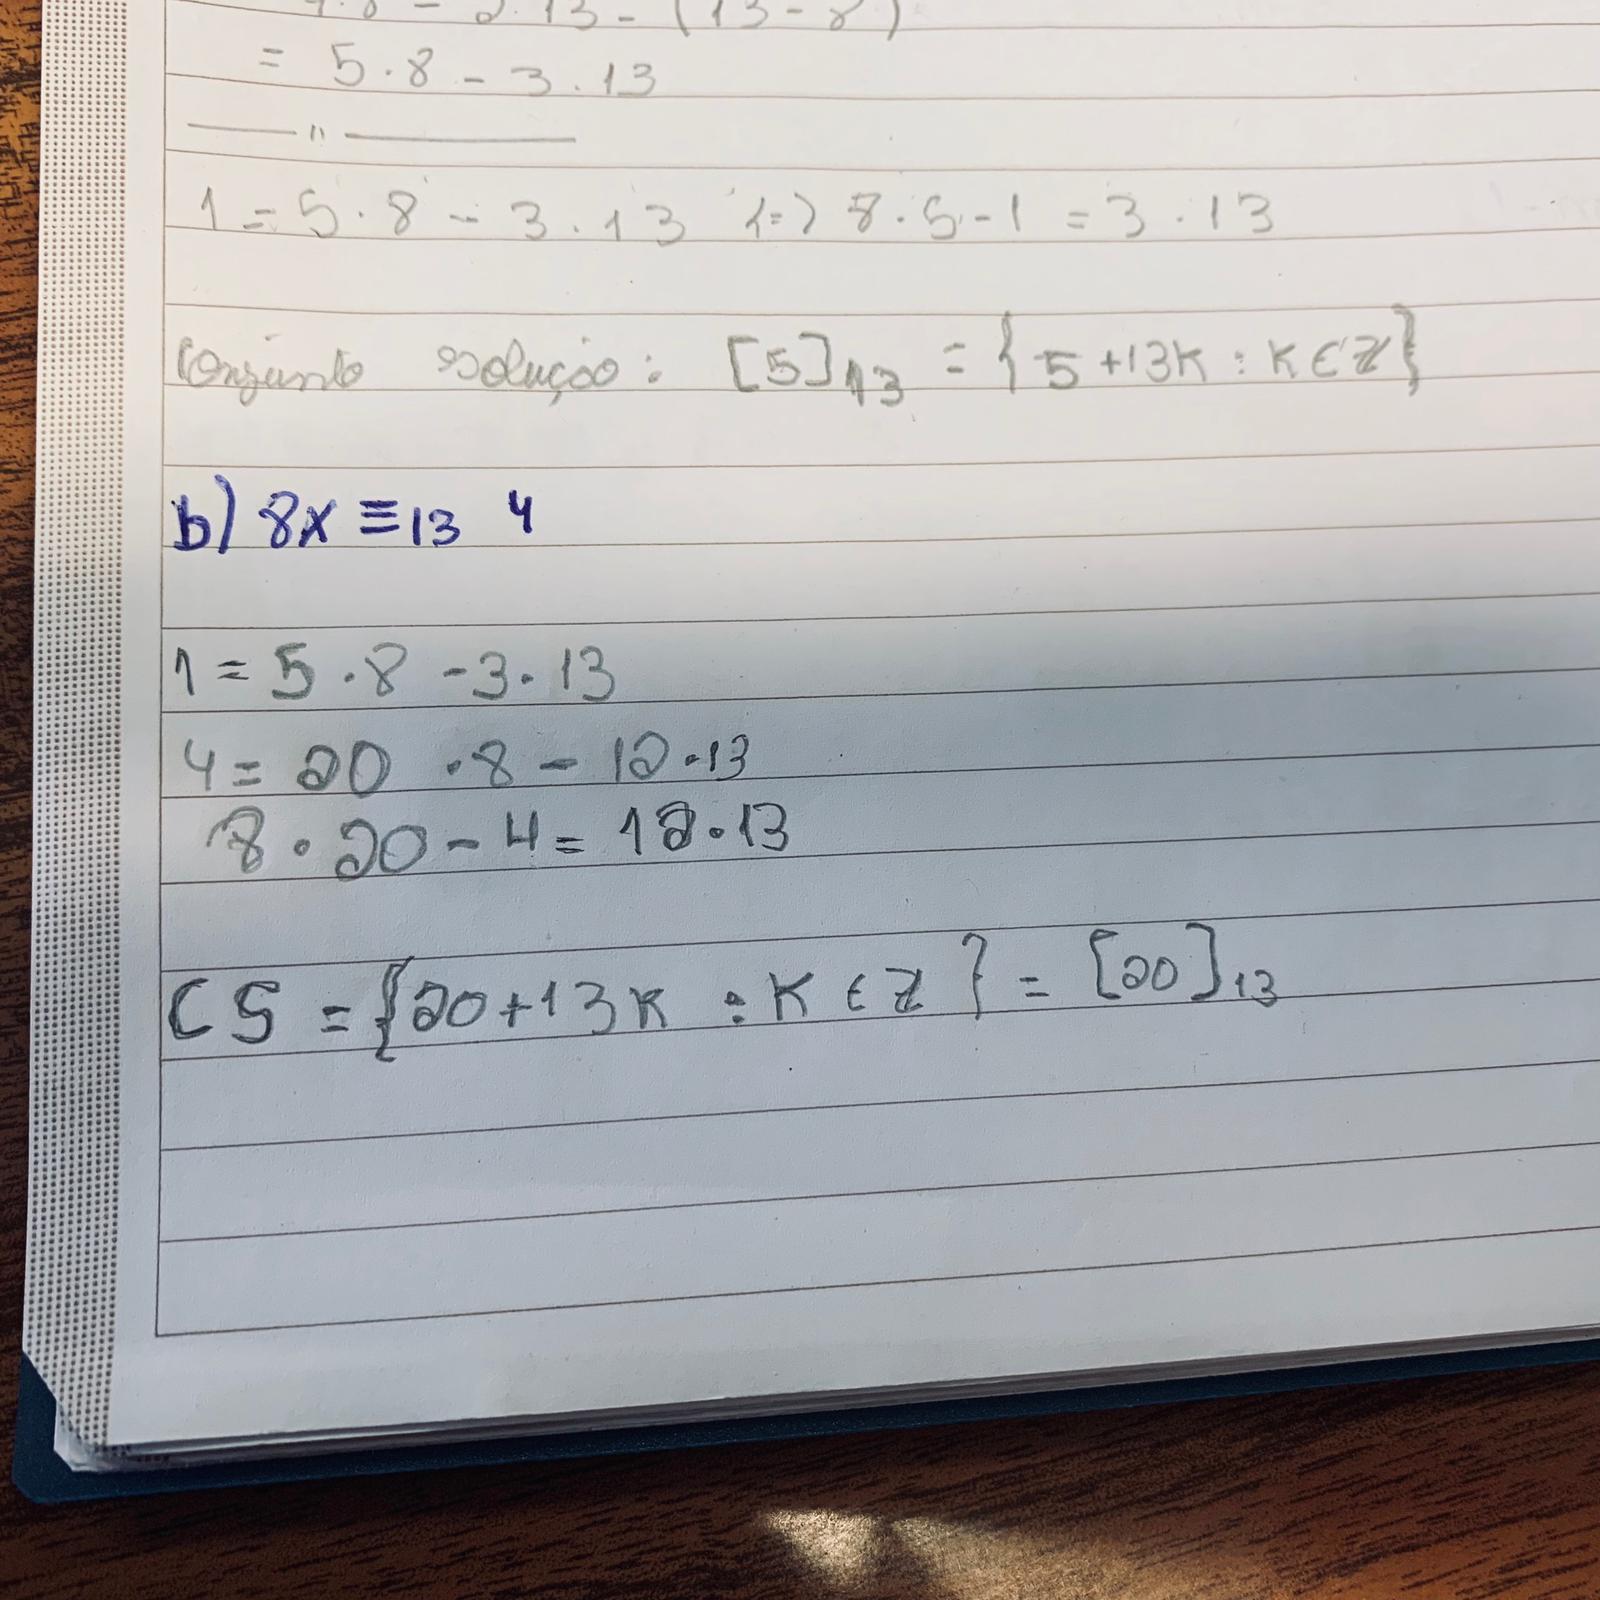 4.8 - 2.13 - (13 - 8)
= 5.8 - 3.13
—— " ————
1 = 5.8 - 3.13 <=> 8.5 - 1 = 3.13
Conjunto solução: [5]₁₃ = {5 + 13K : K ∈ Z}
b) 8x ≡₁₃ 4
1 = 5.8 - 3.13
4 = 20.8 - 12.13
8.20 - 4 = 12.13
CS = {20 + 13K : K ∈ Z} = [20]₁₃